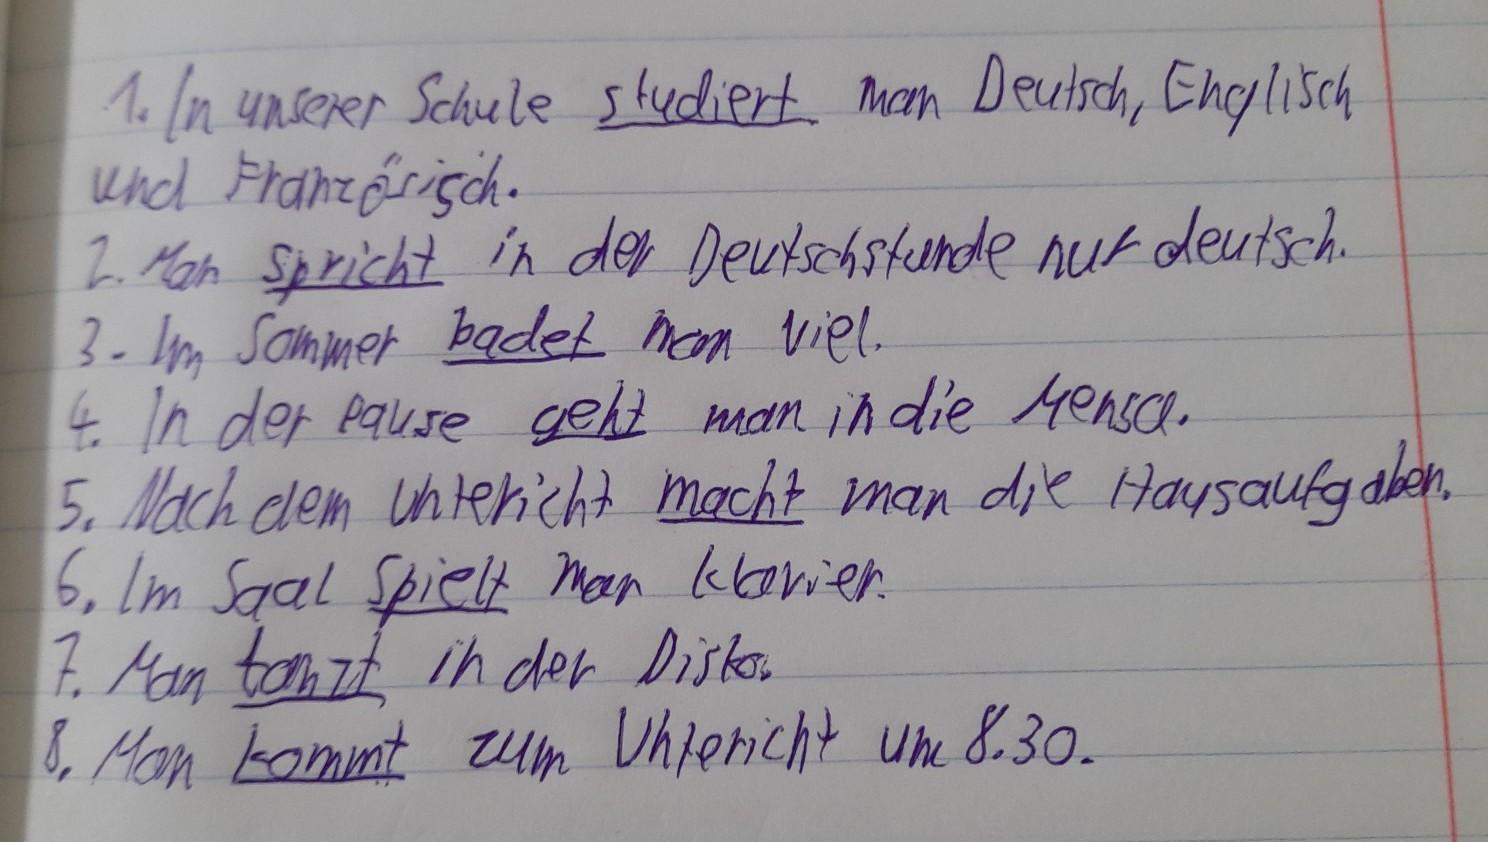 1. In unserer Schule studiert man Deutsch, Englisch
und Französisch.
2. Man spricht in der Deutschstunde nur deutsch.
3. Im Sommer badet man viel.
4. In der Pause geht man in die Mensa.
5. Nach dem Untericht macht man die Hausaufgaben.
6. Im Saal spielt man Klavier.
7. Man tanzt in der Disko.
8. Man kommt zum Untericht um 8.30.